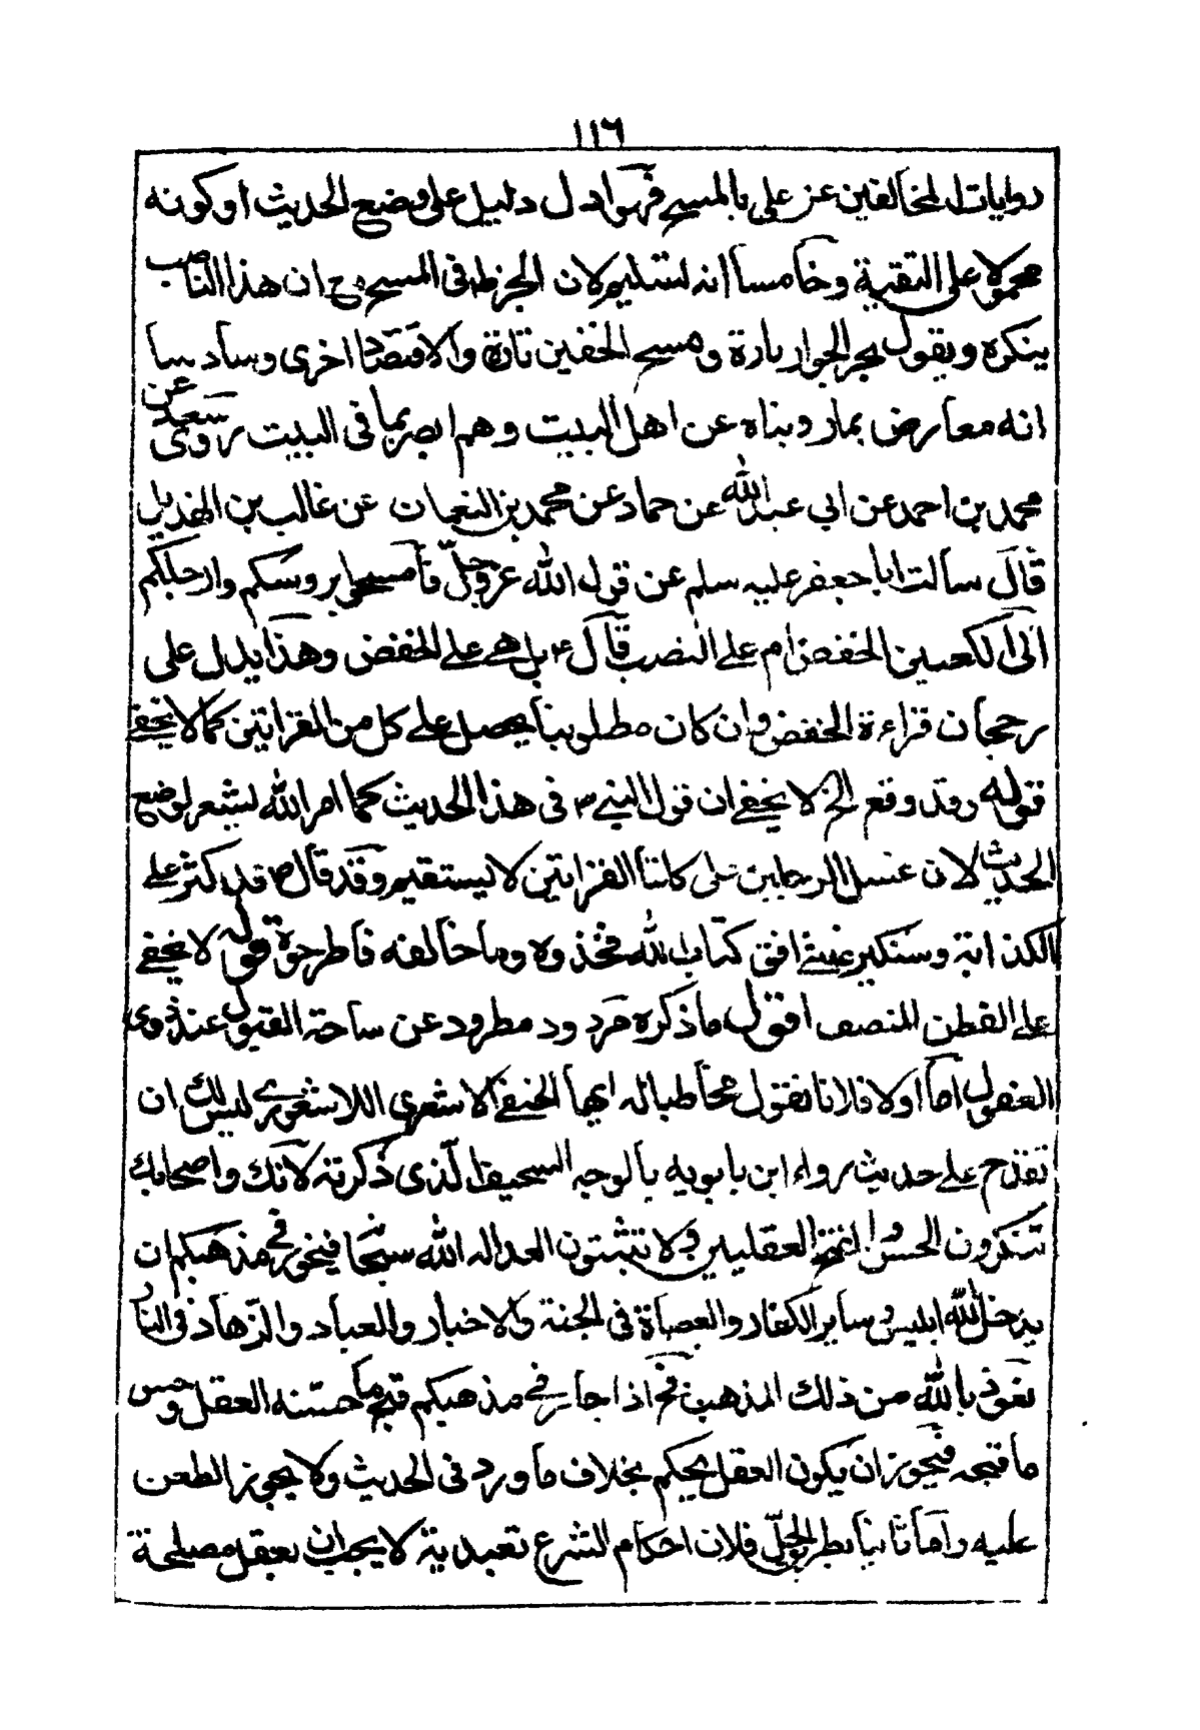 ١١٦
روايات المخالفين عن علي بالمسح فهو ادل دليل على وضع الحديث او كونه
محمولا على التقية وخامسا انه لستليم لان الجر ظ في المسح وح ان هذا الناصب
ينكره ويقول بجر الجوار تارة ومسح الخفين تارة والاقتصاد اخرى وسادسا
انه معارض بما رويناه عن اهل البيت وهم ابصر بما في البيت روى سعيد عن
محمد بن احمد عن ابي عبد الله عن حماد عن محمد بن النعمان عن غالب بن الهذيل
قال سالت ابا جعفر عليه سلم عن قول الله عز وجل فامسحوا بروسكم وارجلكم
الى الكعبين الخفض ام على النصب قال ع بل هي على الخفض وهذا يدل على
رجحان قراءة الخفض وان كان مطلوبنا يحصل على كل من القرائتين كما لا يخفى
قوله وقد وقع الخ لا يخفى ان قول النبي ص في هذا الحديث كما امر الله ليشعر لوضع
الحديث لان غسل الرجلين على كلتا القرائتين لا يستقيم وقد قال ص قد كثر علي
الكذابة وستكثر فما وافق كتاب الله فخذوه وما خالفه فاطرحوه قوله لا يخفى
على الفطن المنصف اقول ما ذكره مردود مطرود عن ساحة القبول عند ذوى
العقول اما اولا فلانا نقول مخاطبا له ايها الحنفي الاشعري اللاشعوري ليس لك ان
تقدح على حديث رواه ابن بابويه بالوجه السحيق الذي ذكرته لانك واصحابك
تنكرون الحسن والقبح العقليين ولا تثبتون العدالة لله سبحانه فيجوز في مذهبكم ان
يدخل الله ابليس وساير الكفار والعصاة في الجنة والاخيار والعباد والزهاد في النار
نعوذ بالله من ذلك المذهب فح اذا جاز في مذهبكم قبح ما حسنه العقل وحسن
ما قبحه فيجوز ان يكون العقل يحكم بخلاف ما ورد في الحديث ولا يجوز الطعن
عليه واما ثانيا بطريق الحل فلان احكام الشرع تعبدية لا يجب ان يعقل مصلحة